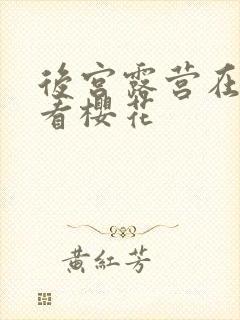 後宮露营在
看樱花
黄紅芳